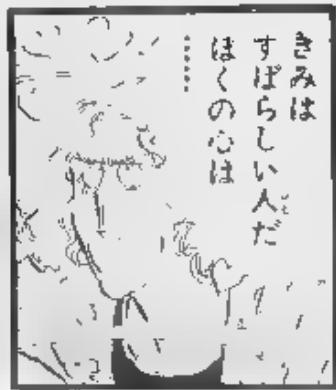 きみは
すばらしい人だ
ぼくの心は
……